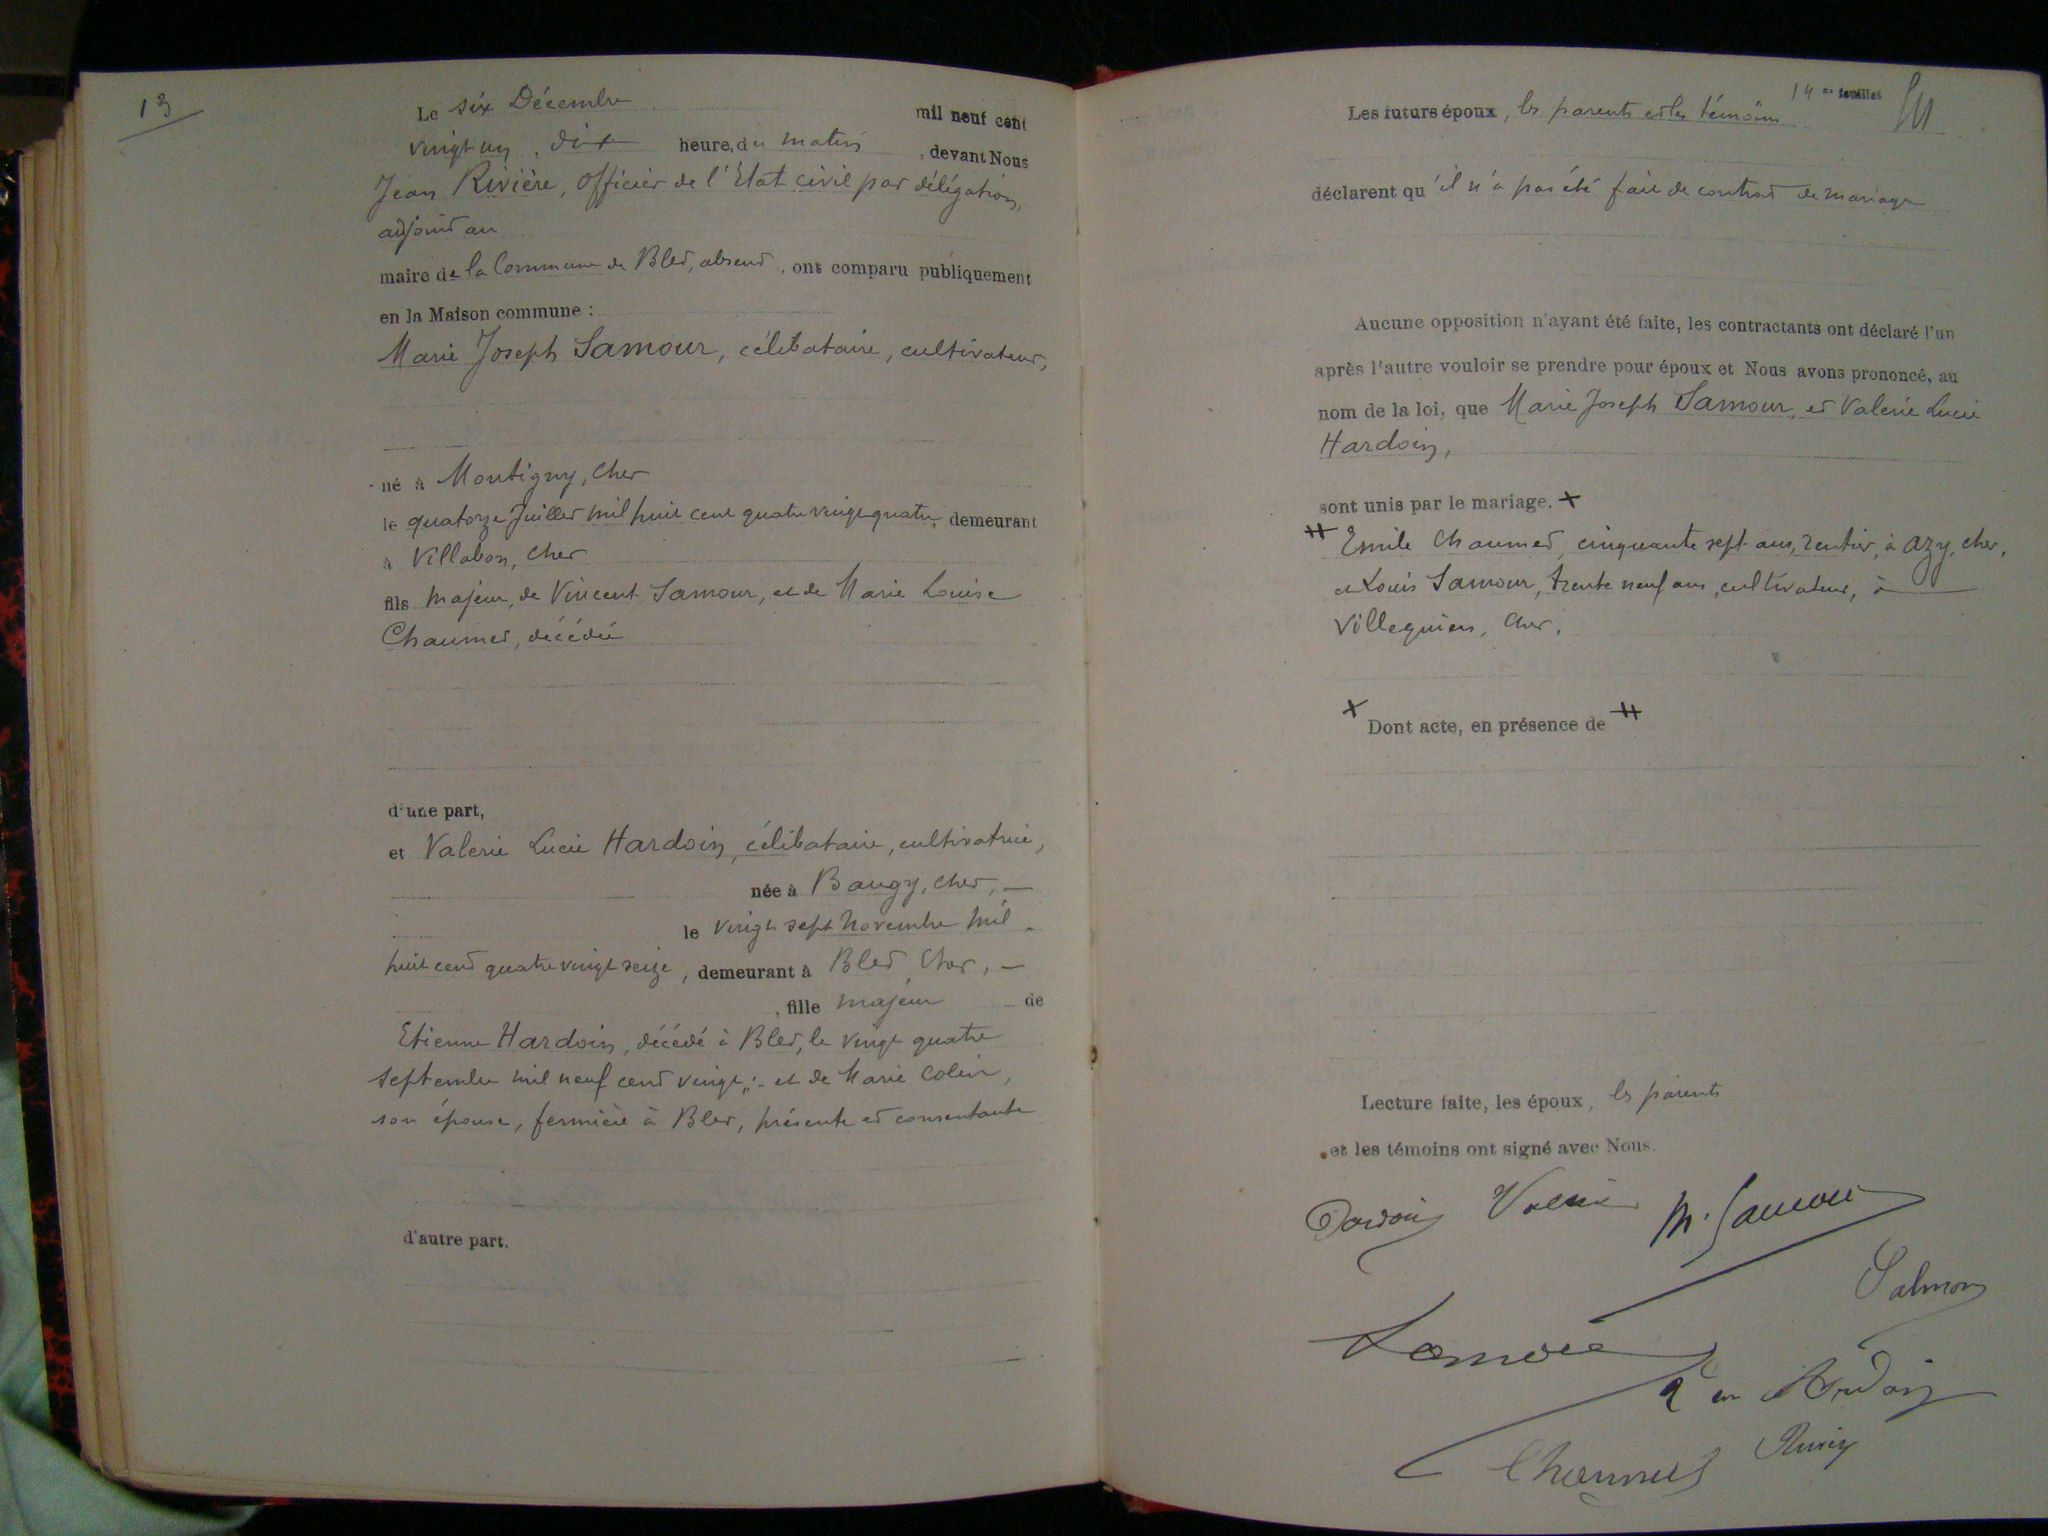 13
Le six Décembre mil neuf cent
vingt un, dix heure, du matin, devant Nous
Jean Rivière, Officier de l'Etat civil par délégation,
adjoint au
maire de la Commune de Blet, absent, ont comparu publiquement
en la Maison commune :
Marie Joseph Samour, célibataire, cultivateur,
né à Montigny, Cher
le quatorze Juillet mil huit cent quatre vingt quatre, demeurant
à Villabon, Cher
fils majeur, de Vincent Samour, et de Marie Louise
Chaumet, décédée
d'une part,
et Valerie Lucie Hardoin, célibataire, cultivatrice,
née à Baugy, Cher, —
le vingt sept Novembre mil
huit cent quatre vingt seize, demeurant à Blet Cher, —
, fille majeur de
Etienne Hardoin, décédé à Blet, le vingt quatre
septembre mil neuf cent vingt, et de Marie Colin,
son épouse, fermière à Blet, présente et consentante
d'autre part.
14 me feuillet
Les futurs époux, les parents et les témoins
déclarent qu'il n'a pas été fait de contrat de mariage
Aucune opposition n'ayant été faite, les contractants ont déclaré l'un
après l'autre vouloir se prendre pour époux et Nous avons prononcé, au
nom de la loi, que Marie Joseph Samour, et Valerie Lucie
Hardoin,
sont unis par le mariage. +
# Emile Chaumet, cinquante sept ans, rentier, à Azy, Cher,
et Louis Samour, trente neuf ans, cultivateur, à —
Villequiers, Cher.
+ Dont acte, en présence de #
Lecture faite, les époux, les parents
et les témoins ont signé avec Nous.
Valerie M. Samour
Salmon
Chaumet